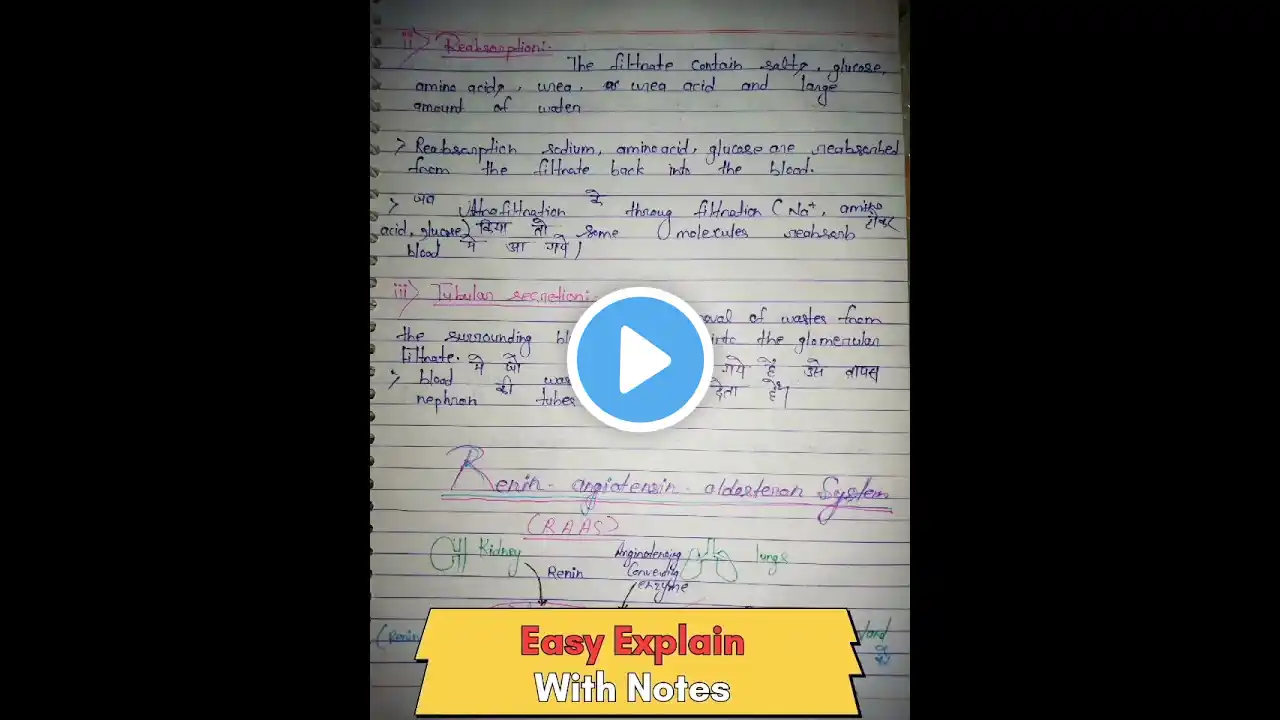 ii> Reabsorption:-
The filtrate contain salts, glucose,
amino acids, urea, or urea acid and large
amount of water
> Reabsorption sodium, aminoacid, glucose are reabsorbed
from the filtrate back into the blood.
> जब Ultrafiltration के throug filtration (Na+, amino
acid, glucose) किया तो some molecules reabsorb होकर
blood में आ गये।
iii> Tubular secretion:-
oval of wastes from
the surrounding bl into the glomerular
filtrate.
> blood में जो was गये हैं उसे वापस
nephron की tubes देता है।
Renin-angiotensin-aldosteron System
(RAAS)
Kidney
Renin
Angiotensing
Converting
enzyme
lungs
(Renin
land
Easy Explain
With Notes